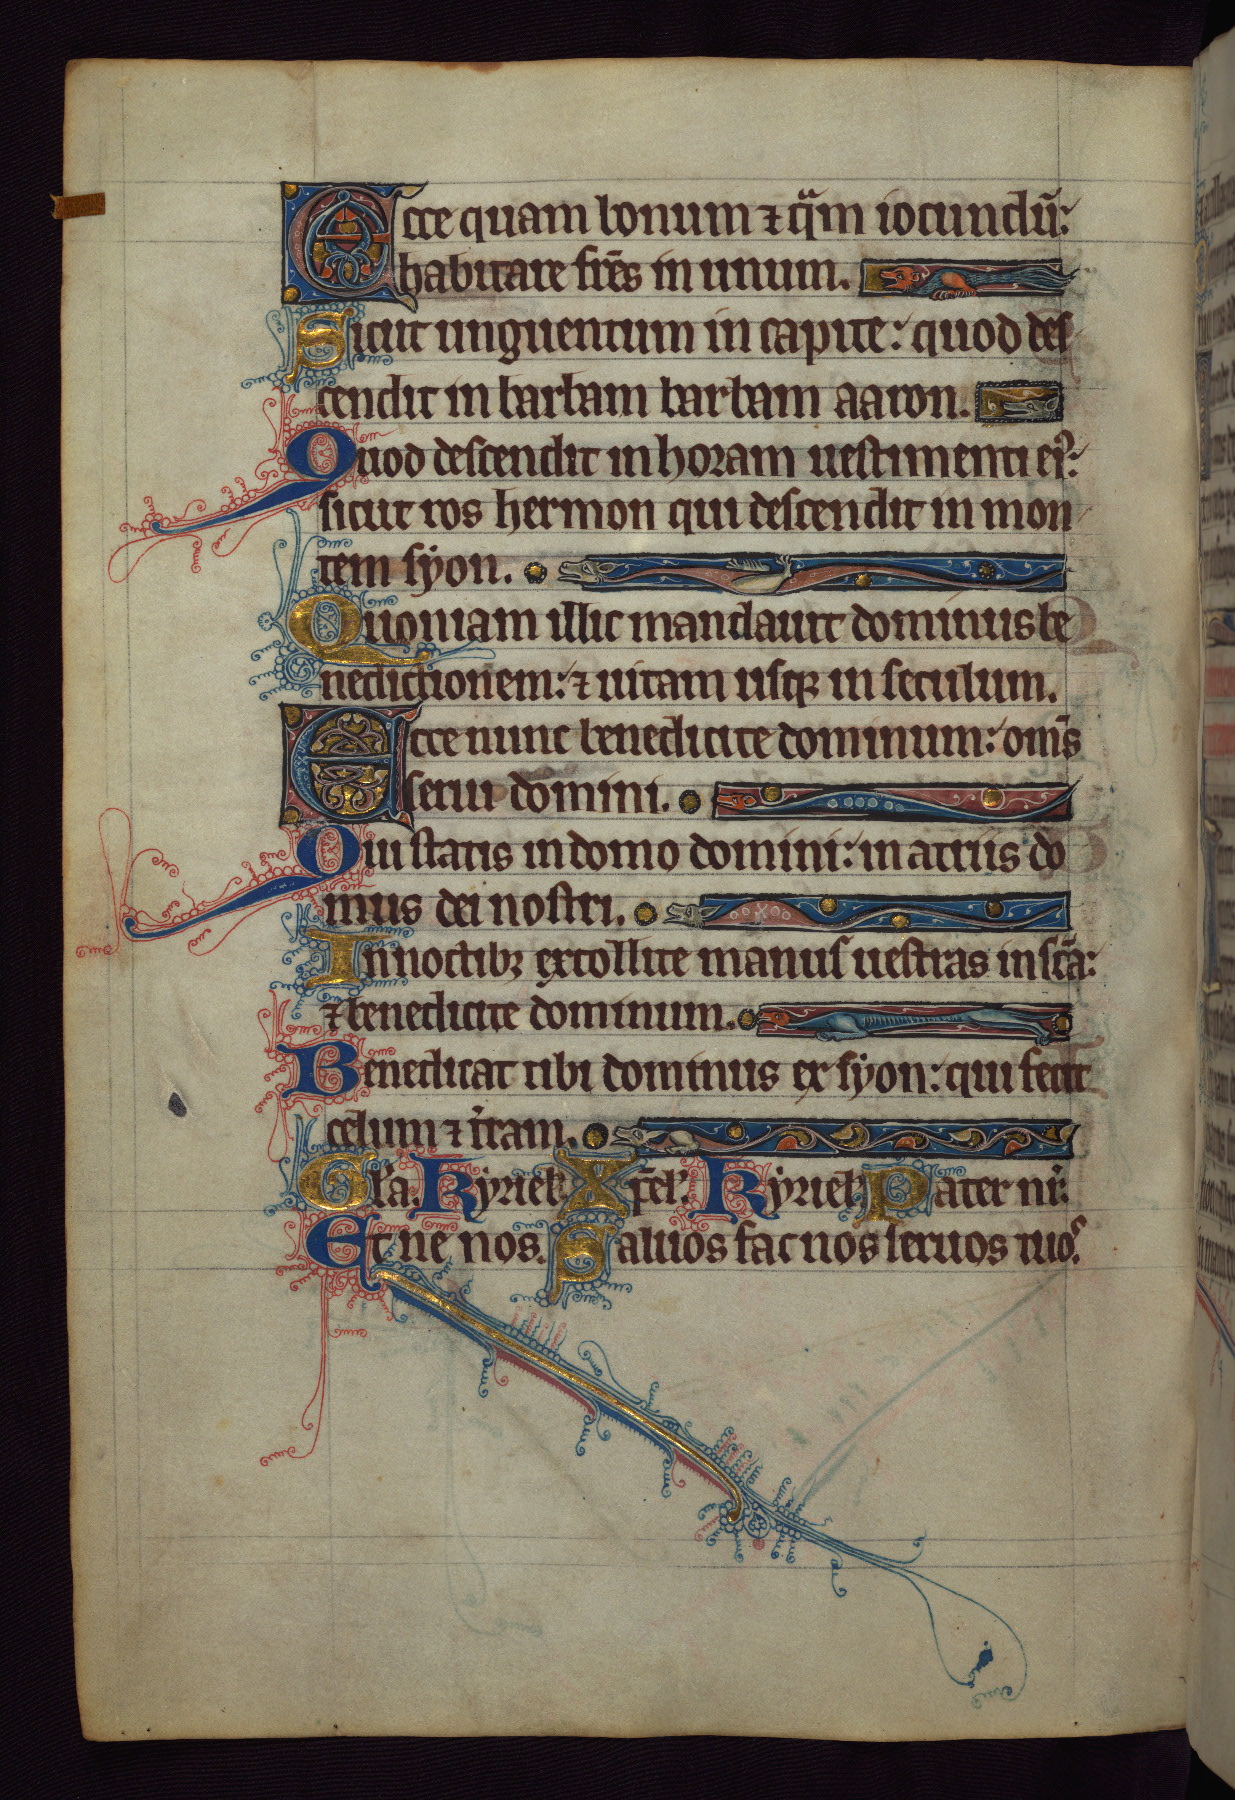 Ecce quam bonum ⁊ q̃m iocundũ:
habitare fr̃es in unum.
Sicut unguentum in capite: quod des
cendit in barbam barbam aaron.
Quod descendit in horam uestimenti eiꝰ:
sicut ros hermon qui descendit in mon
tem syon.
Quoniam illic mandauit dominus be
nedictionem: ⁊ uitam usqꝫ in seculum.
Ecce nunc benedicite dominum: om̃s
serui domini.
Qui statis in domo domini: in atriis do
mus dei nostri.
In noctibꝫ extollite manus uestras in sc̃a:
⁊ benedicite dominum.
Benedicat tibi dominus ex syon: qui fecit
celum ⁊ t̃ram.
Gl̃a. Kyriel̃. Xp̃el̃. Kyriel̃. Pater nr̃.
Et ne nos. Saluos fac nos seruos tuoꝰ.